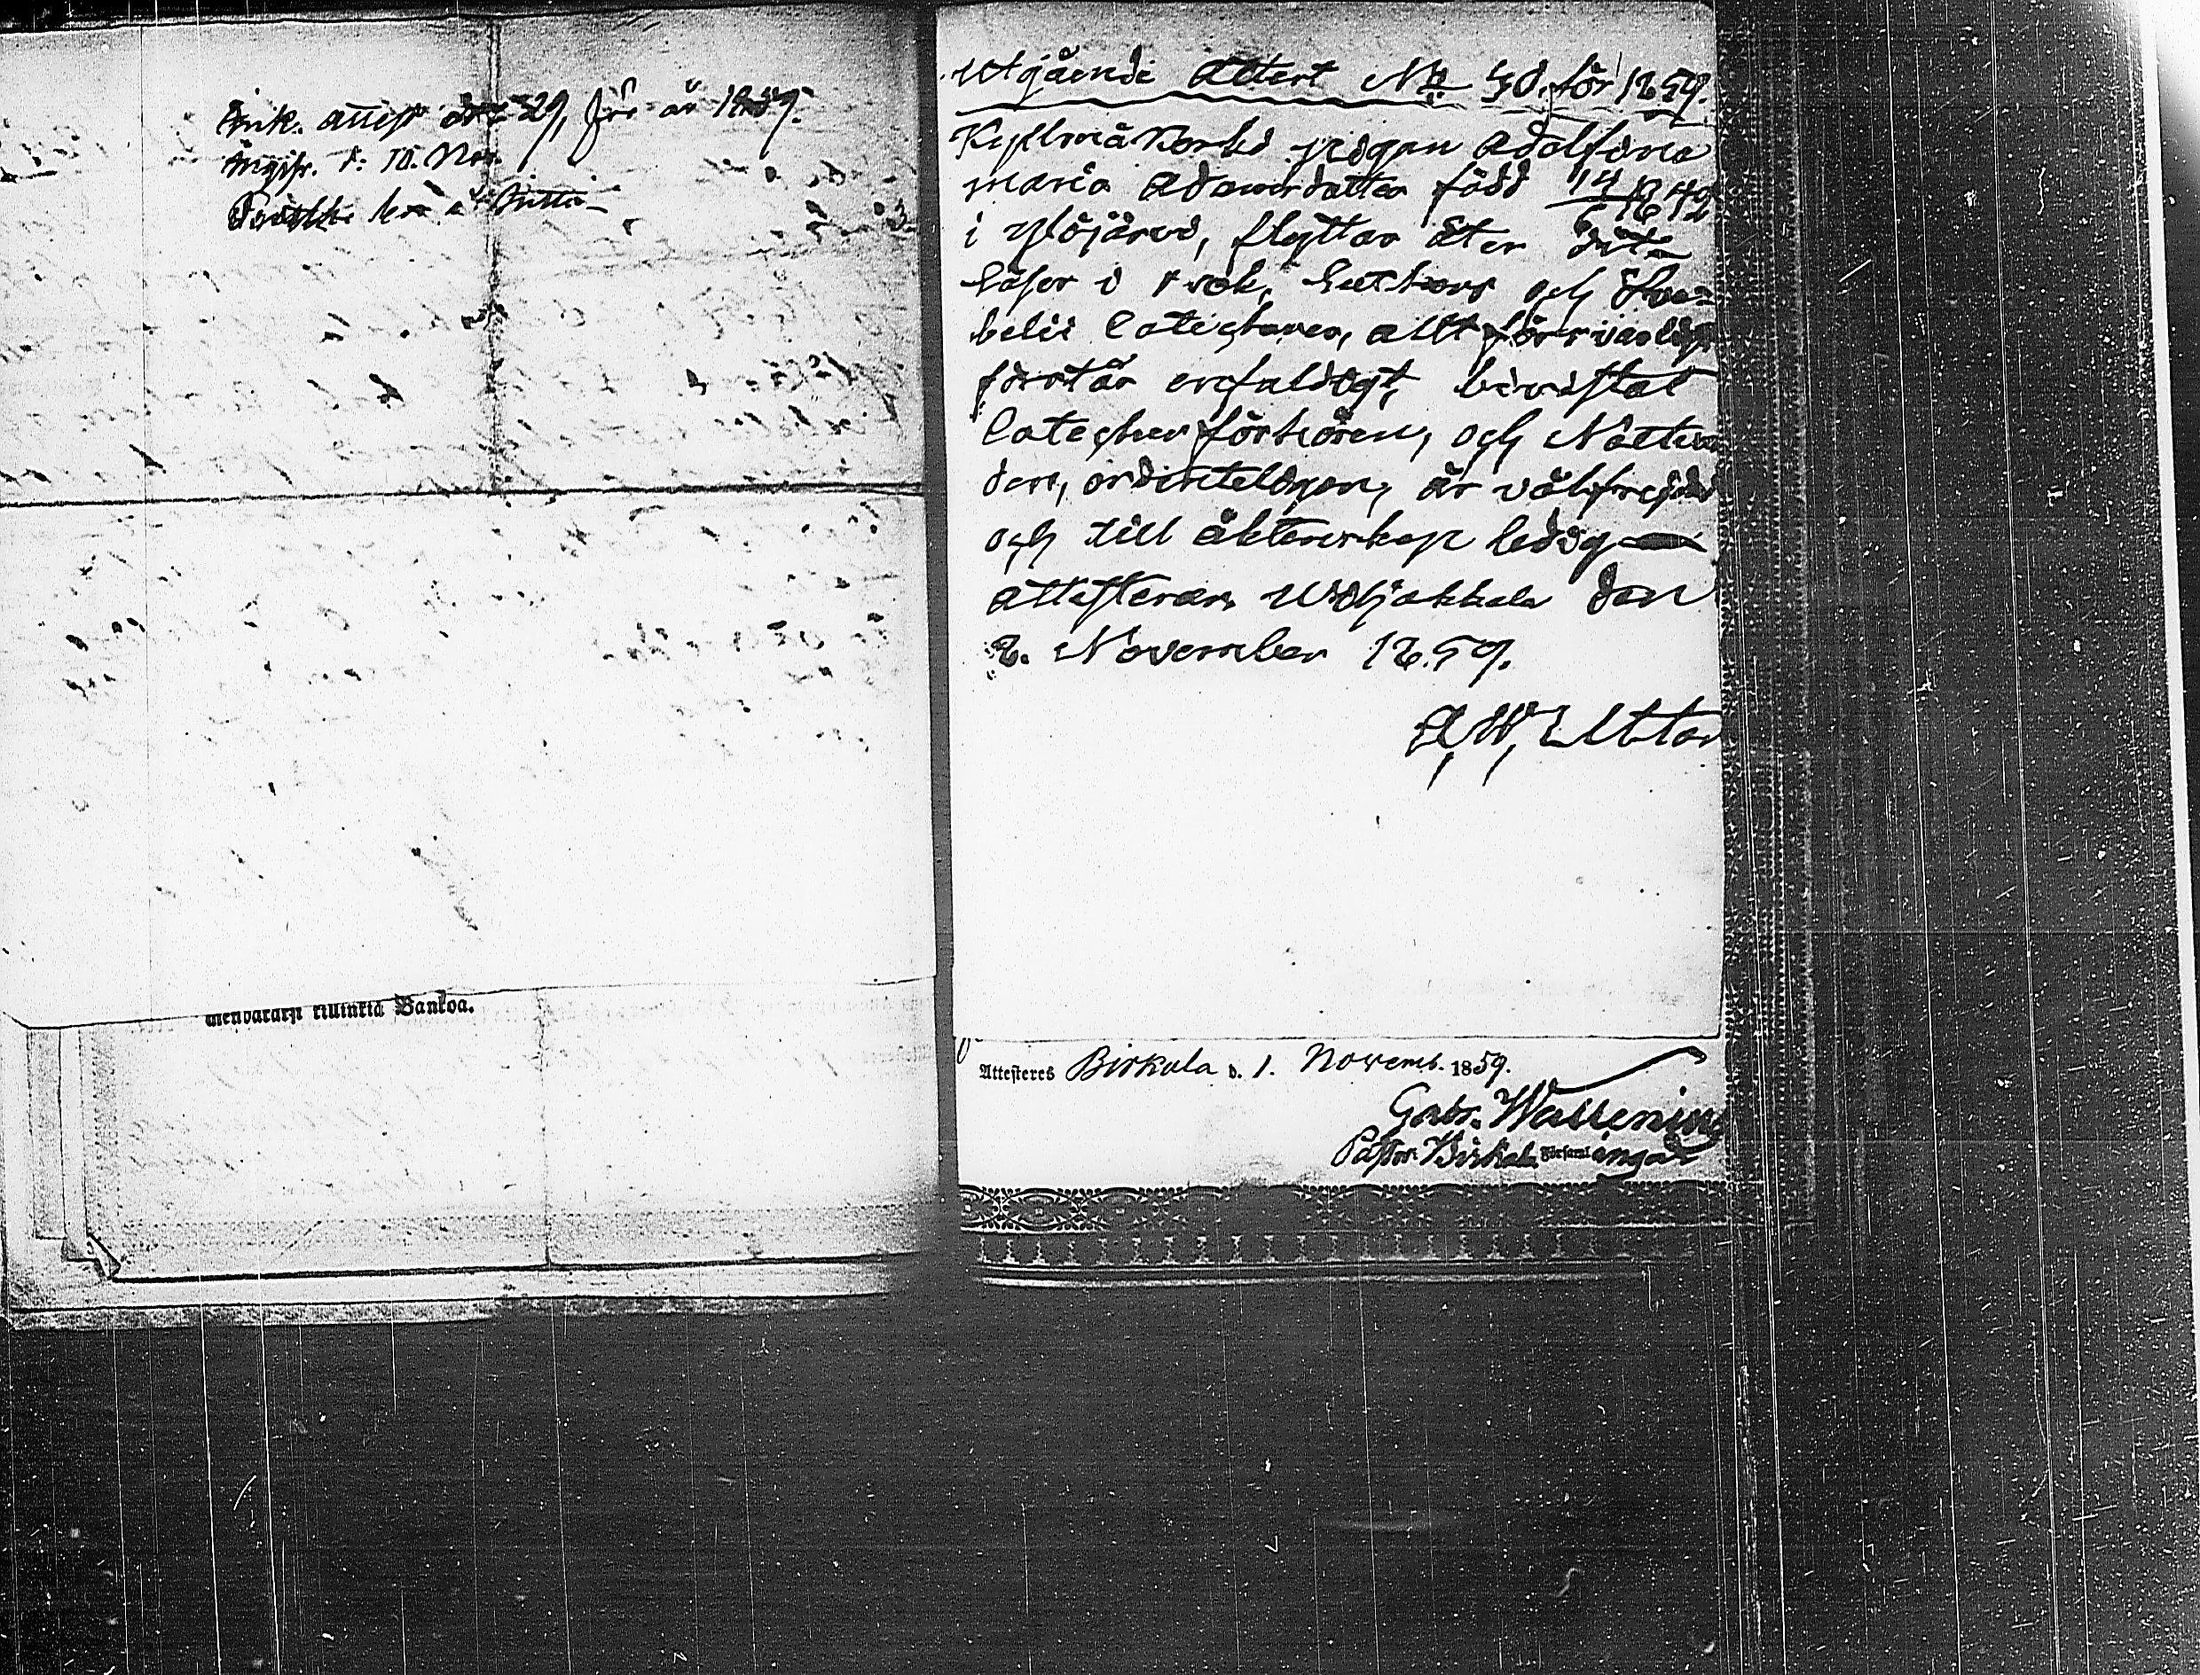 Ink. attest N:o 29, för år 1859.
Ingifv. d: 10. Nov.
Utgående Attest No 40. för 1859.
Kyllmäkoski pigan Adolfina
Maria Adamsdotter född 14/6 1842
i Ylöjärvi, flyttar åter dit
läser i bok, Luthers och Sve-
belii Catechesen, allt försvarligt
förstår enfaldigt, bevistat
Catechesförhören, och Nattvar
den, ordinteligen, är välfrejdad
och till äktenskap ledig
attesteras Wiljakkala den
2. November 1859.
A, W, Elttar
mendaratzi killinkiä Bankoa.
Attesteres Birkala d. 1. Novemb. 1859.
Gabr. Wallenius
Pastor i Birkala Församlingar